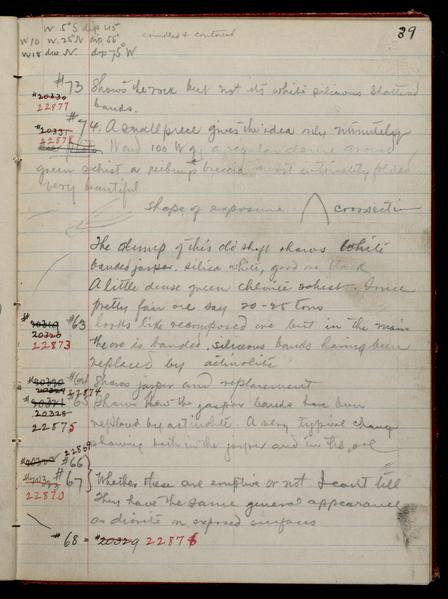 39
W 5°S dip 45
W10 W. 25°N dip 55°
W18 due N. dip 75° W
crinkled & contorted
#73 Shows the rock but not its white silicious
#20330
22877 bands.
#74. A small piece gives the idea only minutely
#20331
22878
N and 100 W of a regular dome around
green schist or breccia most folded
very beautiful
Shape of exposure cross section
The dump of this old shaft shows white
banded jasper. silica white, good or black
A little dense green chlorite schist. Some
pretty fair ore say 20-25 tons
#63 looks like recomposed ore but in the main
22873 the ore is banded. siliceous bands having been
replaced by actinolite
#64 Shows jasper and replacement
22874
#65 Shows how the jasper bands have been
20328
22875 replaced by actinolite. A very typical change
showing both in the jasper and in the ore
22869
#66
#67 Whether these are eruptive or not I can't tell
22870 They have the same general appearance
as diorite on exposed surfaces
#68 = #20329 22876